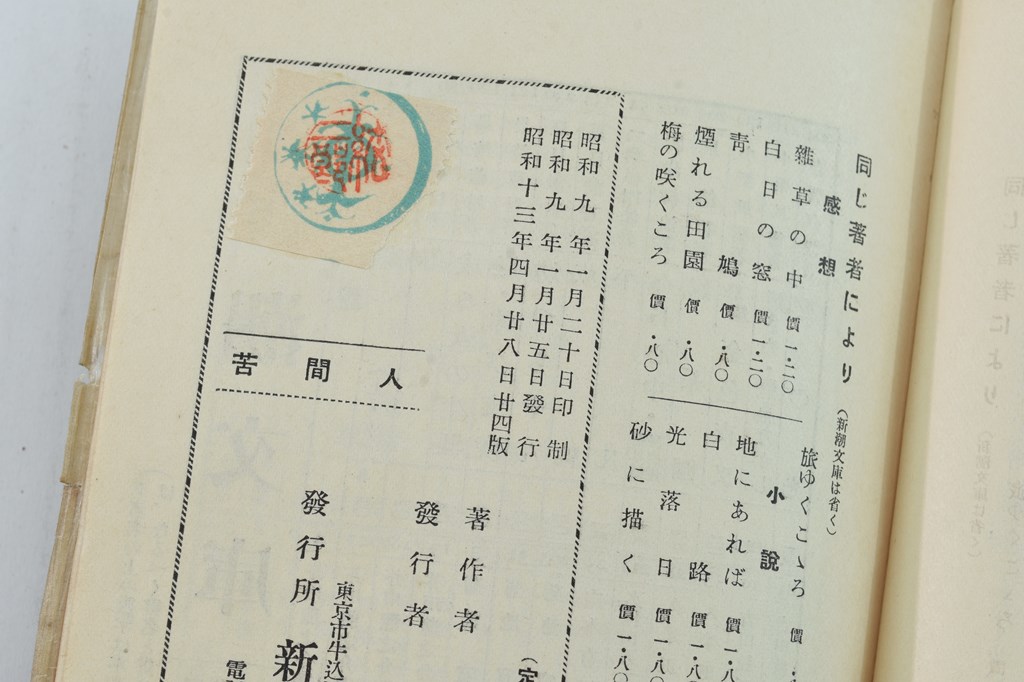 同じ著者により(新潮文庫は省く)
感想
雜草の中 價 一・二〇
白日の窓 價 一・二〇
青鳩 價 ・八〇
煙れる田園 價 ・八〇
梅の咲くころ 價 ・八〇
旅ゆくこゝろ 價
小說
地にあれば 價 一・八
白路 價 一・八
光落日 價 一・八〇
砂に描く 價 一・八〇
昭和九年一月二十日印制
昭和九年一月廿五日發行
昭和十三年四月廿八日廿四版
人間苦
(定
著作者
發行者
東京市牛込
發行所 新
電